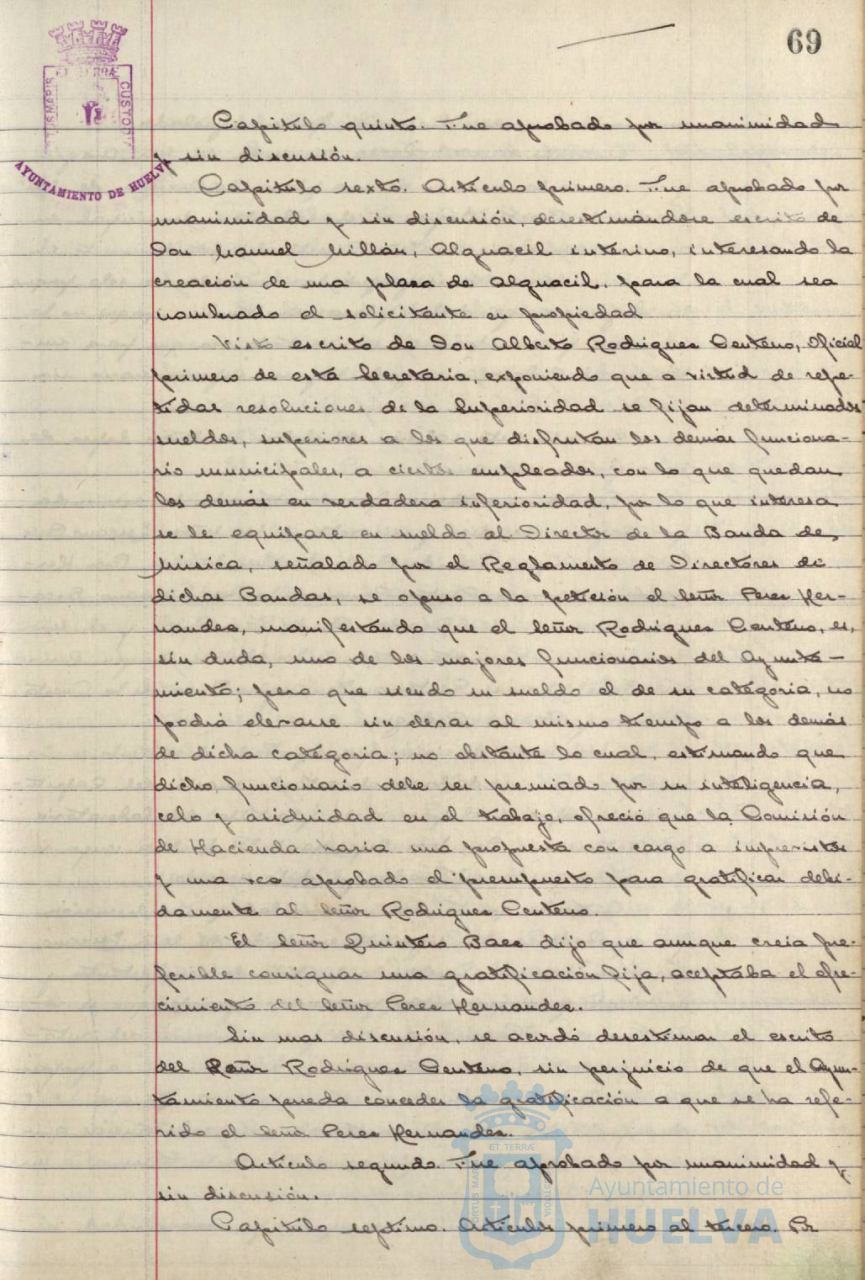 69
AYUNTAMIENTO DE HUELVA
Capitulo quinto. Fue aprobado por unanimidad
y sin discusión.
Capitulo sexto. Articulo primero. Fue aprobado por
unanimidad y sin discusión, desestimándose escrito de
Don Manuel Millán, Alguacil interino, interesando la
creación de una plaza de Alguacil, para la cual sea
nombrado el solicitante en propiedad
Visto escrito de Don Alberto Rodriguez Centeno, Oficial
primero de esta Secretaria, exponiendo que a virtud de repe-
tidas resoluciones de la Superioridad se fijan determinados
sueldos, superiores a los que disfrutan los demás funciona-
rio municipales, a ciertos empleados, con lo que quedan
los demás en verdadera inferioridad, por lo que interesa
se le equipare en sueldo al Director de la Banda de
Música, señalado por el Reglamento de Directores de
dichas Bandas, se opuso a la petición el señor Perez Her-
nandez, manifestando que el señor Rodriguez Centeno, es,
sin duda, uno de los mejores funcionarios del Ayunta-
miento; pero que siendo su sueldo el de su categoria, no
podrá elevarse sin elevar al mismo tiempo a los demás
de dicha categoria; no obstante lo cual, estimando que
dicho funcionario debe ser premiado por su inteligencia,
celo y asiduidad en el trabajo, ofreció que la Comisión
de Hacienda haria una propuesta con cargo a imprevistos
y una vez aprobado el presupuesto para gratificar debi-
damente al señor Rodriguez Centeno.
El señor Quintero Baez dijo que aunque creia pre-
ferible consignar una gratificación fija, aceptaba el ofre-
cimiento del señor Perez Hernandez.
Sin mas discusión, se acordó desestimar el escrito
del señor Rodriguez Centeno, sin perjuicio de que el Ayun-
tamiento pueda conceder la gratificación a que se ha refe-
rido el señor Perez Hernandez.
Articulo segundo. Fue aprobado por unanimidad y
sin discusión.
Capitulo septimo. Articulos primero al tercero. Por
Ayuntamiento de
HUELVA